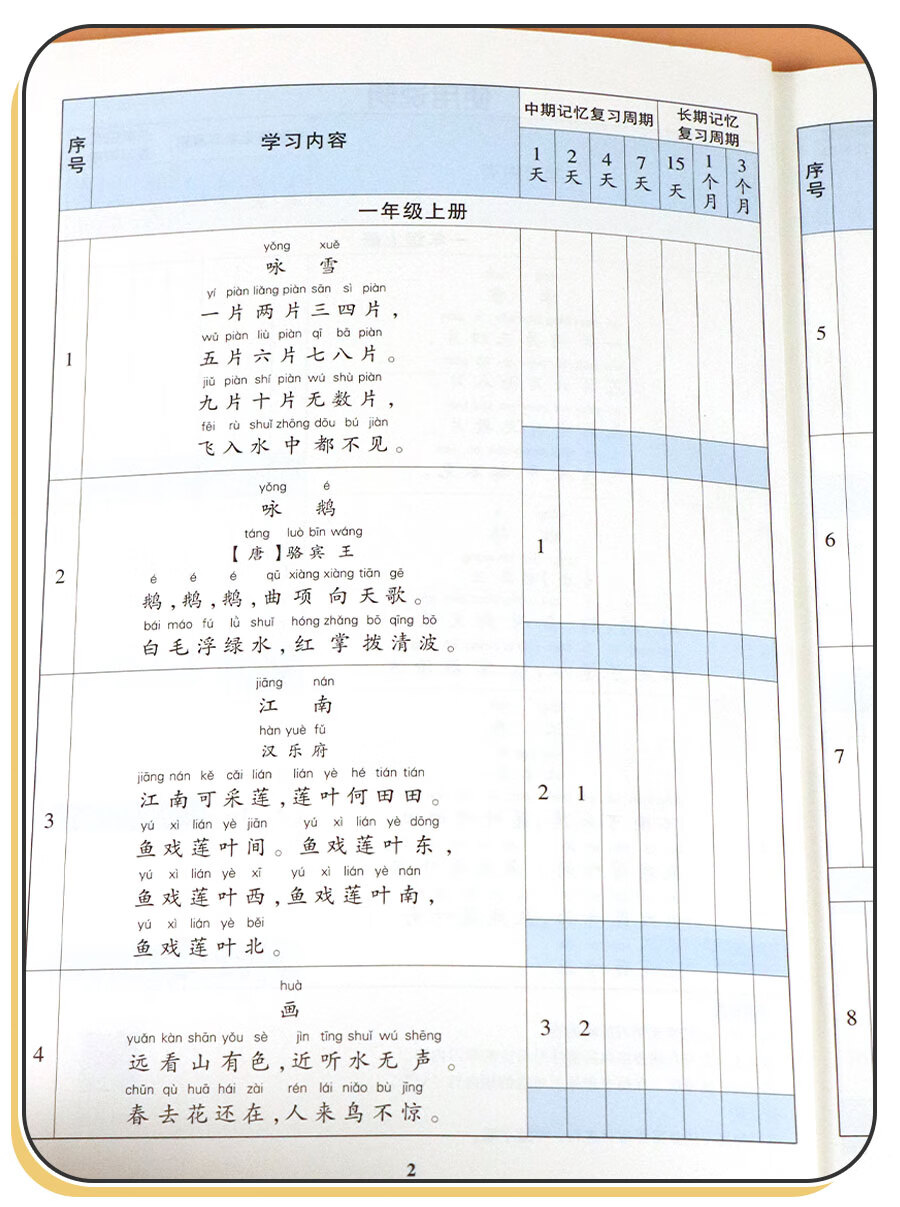 序号 学习内容 中期记忆复习周期 长期记忆复习周期
1天 2天 4天 7天 15天 1个月 3个月
一年级上册
1
yǒng xuě
咏 雪
yí piàn liǎng piàn sān sì piàn
一片两片三四片，
wǔ piàn liù piàn qī bā piàn
五片六片七八片。
jiǔ piàn shí piàn wú shù piàn
九片十片无数片，
fēi rù shuǐ zhōng dōu bú jiàn
飞入水中都不见。
2
yǒng é
咏 鹅
táng luò bīn wáng
【唐】骆宾王
é é é qū xiàng xiàng tiān gē
鹅，鹅，鹅，曲项向天歌。
bái máo fú lǜ shuǐ hóng zhǎng bō qīng bō
白毛浮绿水，红掌拨清波。
1
3
jiāng nán
江 南
hàn yuè fǔ
汉乐府
jiāng nán kě cǎi lián lián yè hé tián tián
江南可采莲，莲叶何田田。
yú xì lián yè jiān yú xì lián yè dōng
鱼戏莲叶间。鱼戏莲叶东，
yú xì lián yè xī yú xì lián yè nán
鱼戏莲叶西，鱼戏莲叶南，
yú xì lián yè běi
鱼戏莲叶北。
2 1
4
huà
画
yuǎn kàn shān yǒu sè jìn tīng shuǐ wú shēng
远看山有色，近听水无声。
chūn qù huā hái zài rén lái niǎo bù jīng
春去花还在，人来鸟不惊。
3 2
2
序号
5
6
7
8